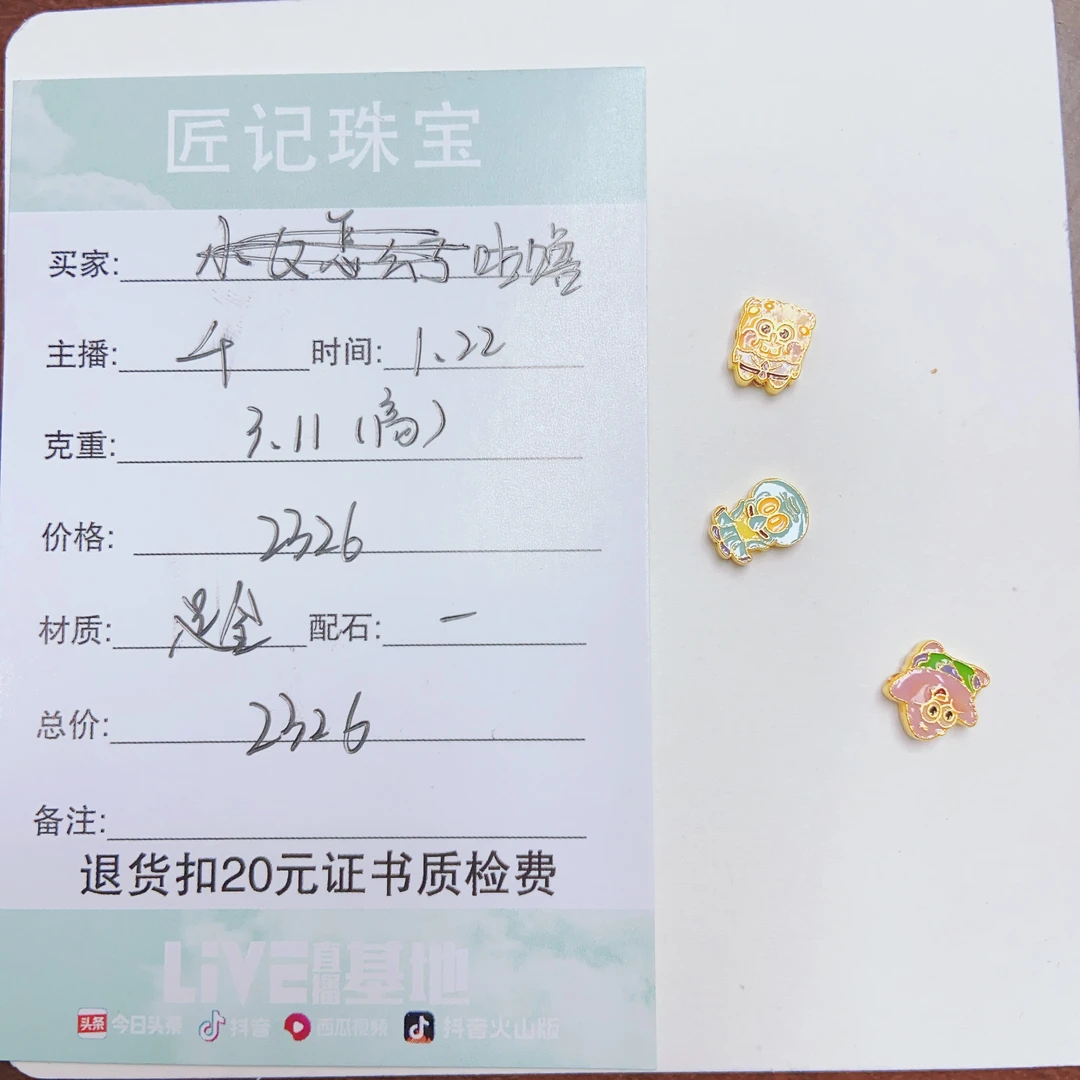 匠记珠宝
买家: 咕噜
主播: 4 时间: 1.22
克重: 3.11(高)
价格: 2326
材质: 足金 配石: 一
总价: 2326
备注:
退货扣20元证书质检费
LiVE直播基地
头条 今日头条 抖音 西瓜视频 抖音火山版